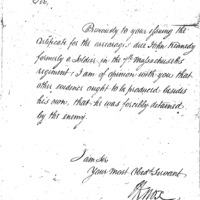 Sir,
Previously to your issuing the
Certificate for the arrearages due John Kennedy
formerly a Soldier in the 7th Massachusetts
regiment; I am of opinion with you that
other evidence ought to be produced besides
his own, that he was forcibly detained
by the enemy.
I am Sir
Your most Obed.t Servant
HKnox